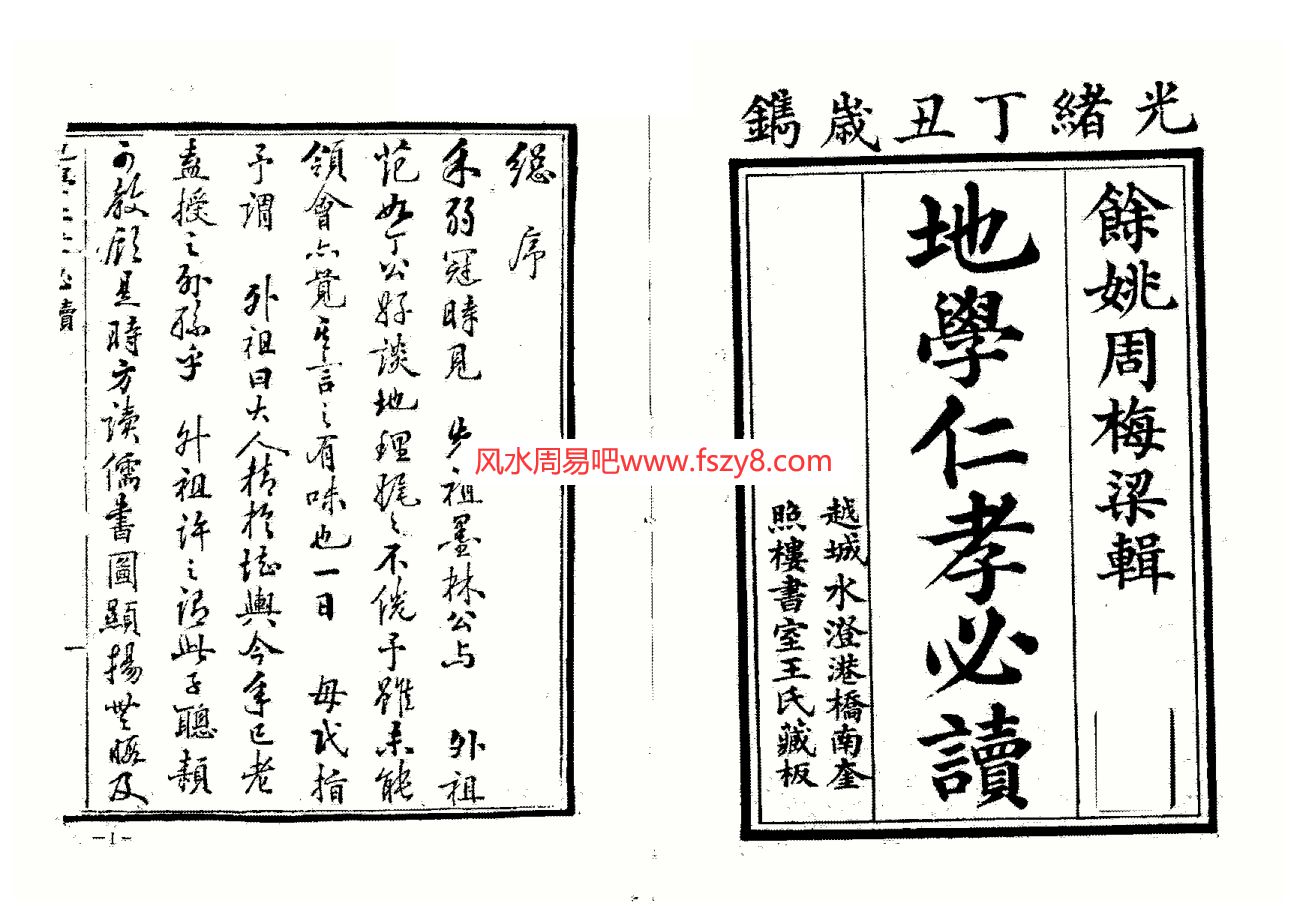 光緒丁丑歲鐫
餘姚周梅梁輯
地學仁孝必讀
越城水澄港橋南奎
照樓書室王氏藏板
總序
余弱冠時見 先祖墨林公与 外祖
范如丁公談地理娓々不倦予雖未能
領會亦覺其言之有味也一日 母氏指
予謂 外祖曰大人精於堪輿今年已老
盍授之外孫乎 外祖許之謂此子聰穎
可教顧是時方讀儒書圖顯揚無暇及
必讀
一
-1-
风水周易吧www.fszy8.com